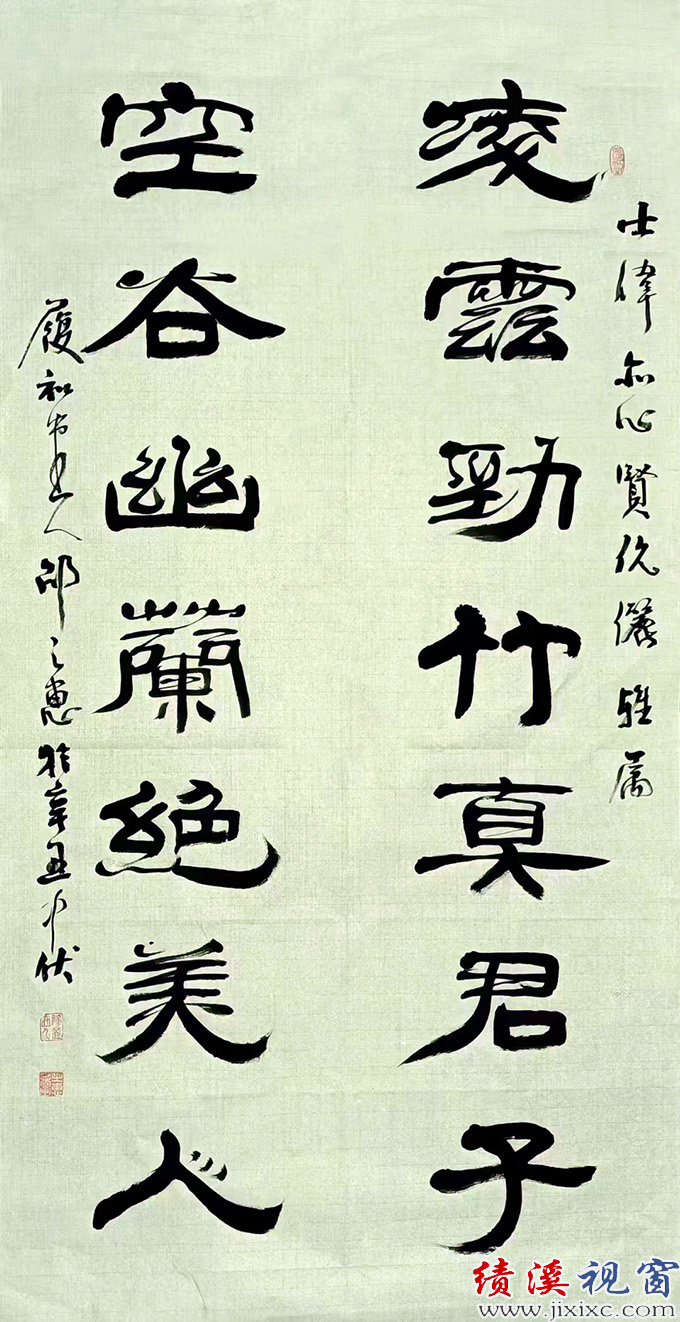 士偉亦沁賢伉儷雅屬
凌雲勁竹真君子
空谷幽蘭絕美人
履和主人邵之惠於辛丑中伏
绩溪视窗
www.jixixc.com